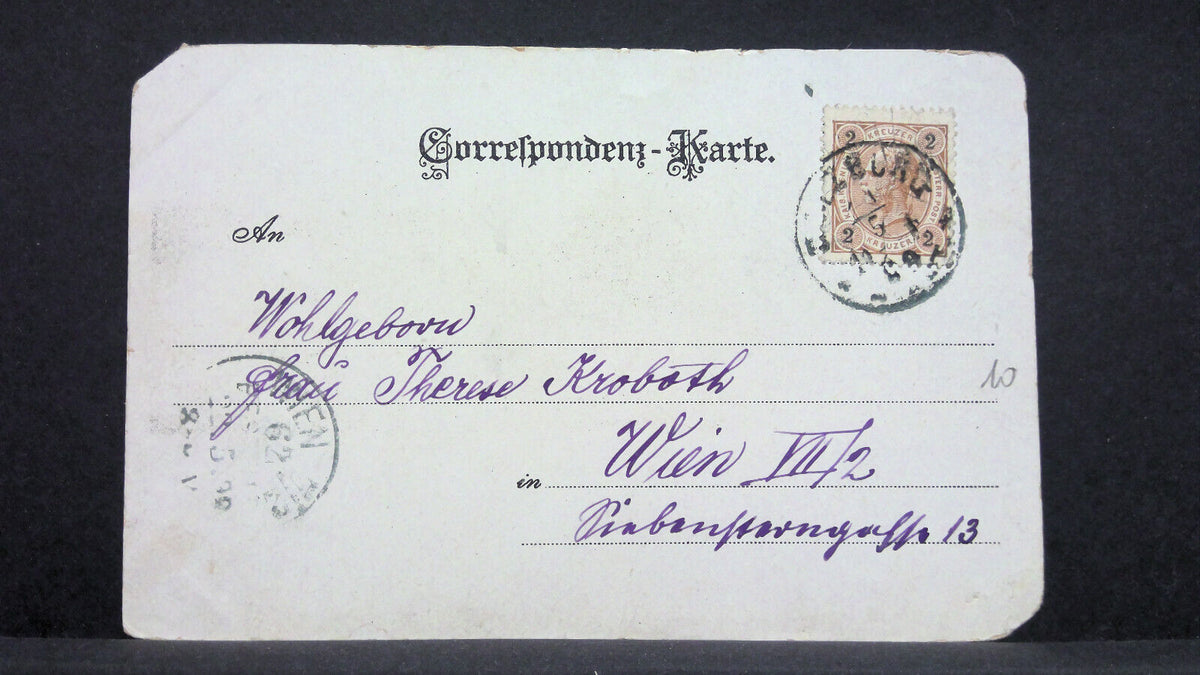 Correspondenz-Karte.
2 KREUZER 2
2 KREUZER 2
An
Wohlgeborn
Frau Therese Kroboth
in Wien VII/2
Siebensterngasse 13
10
WIEN
62